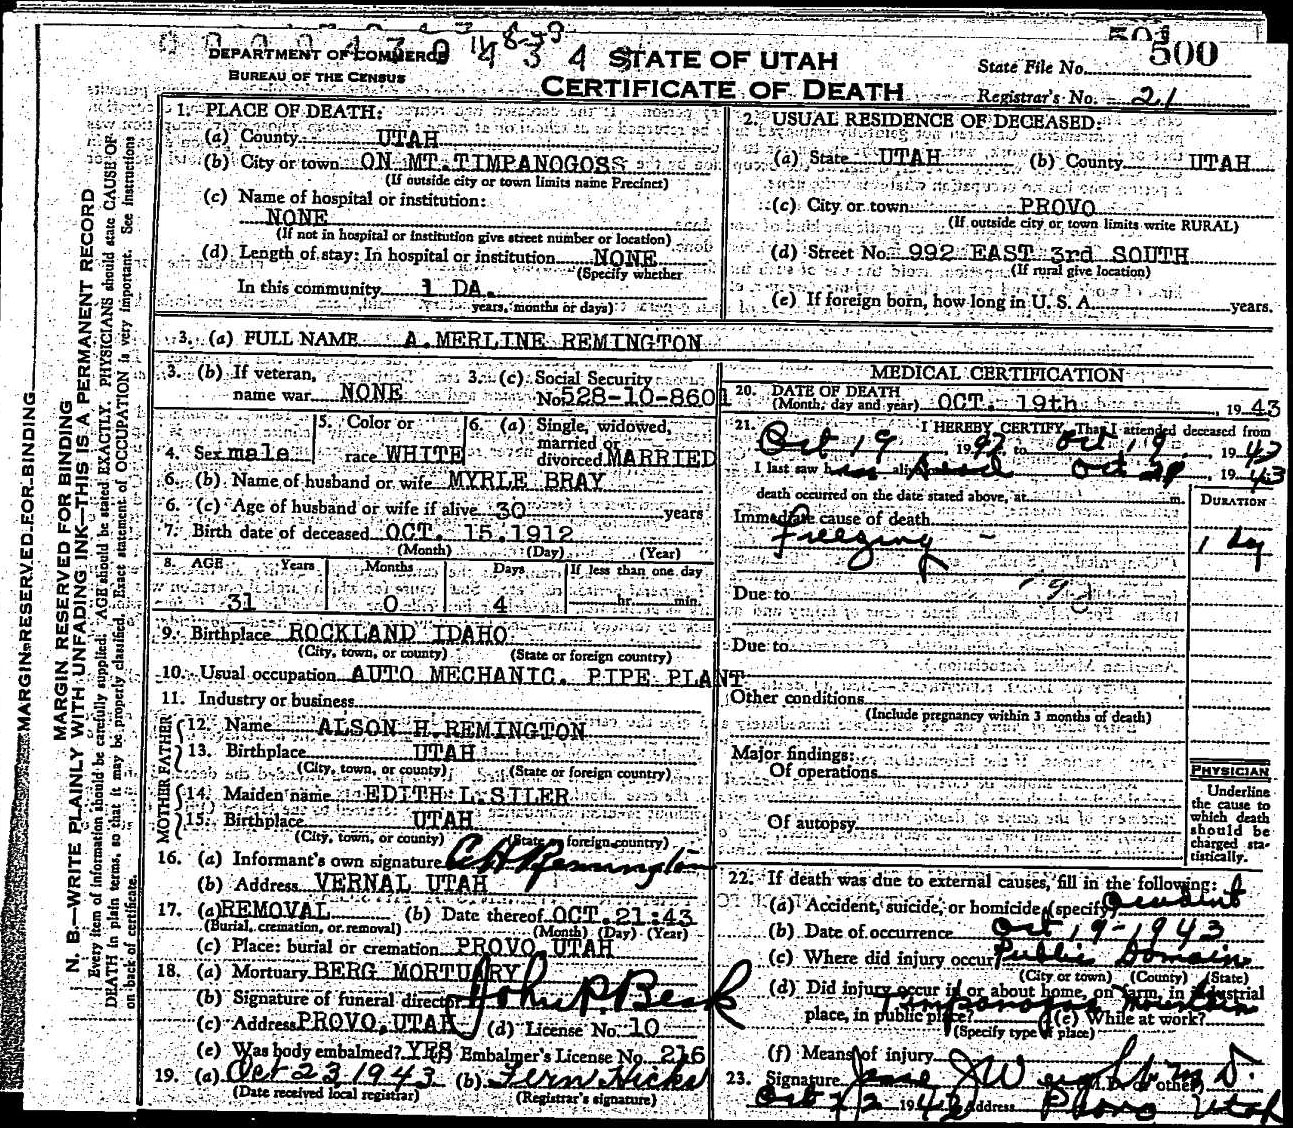 DEPARTMENT OF COMMERCE
BUREAU OF THE CENSUS
STATE OF UTAH
CERTIFICATE OF DEATH
State File No. 500
Registrar's No. 21
MARGIN RESERVED FOR BINDING
MARGIN RESERVED FOR BINDING
N. B.—WRITE PLAINLY WITH UNFADING INK—THIS IS A PERMANENT RECORD
Every item of information should be carefully supplied. AGE should be stated EXACTLY. PHYSICIANS should state CAUSE OF
DEATH in plain terms, so that it may be properly classified. Exact statement of OCCUPATION is very important. See Instructions
on back of certificate.
1. PLACE OF DEATH:
(a) County UTAH
(b) City or town ON MT.TIMPANOGOSS
(If outside city or town limits name Precinct)
(c) Name of hospital or institution:
NONE
(If not in hospital or institution give street number or location)
(d) Length of stay: In hospital or institution NONE
(Specify whether
In this community 1 DA.
years, months or days)
2. USUAL RESIDENCE OF DECEASED:
(a) State UTAH (b) County UTAH
(c) City or town PROVO
(If outside city or town limits write RURAL)
(d) Street No. 992 EAST 3rd SOUTH
(If rural give location)
(e) If foreign born, how long in U. S. A. years.
3. (a) FULL NAME A.MERLINE REMINGTON
3. (b) If veteran,
name war NONE
3. (c) Social Security
No. 528-10-8601
4. Sex male
5. Color or
race WHITE
6. (a) Single, widowed,
married or
divorced MARRIED
6. (b) Name of husband or wife MYRLE BRAY
6. (c) Age of husband or wife if alive 30 years
7. Birth date of deceased OCT. 15.1912
(Month) (Day) (Year)
8. AGE Years Months Days If less than one day
31 0 4 hr. min.
9. Birthplace ROCKLAND IDAHO
(City, town, or county) (State or foreign country)
10. Usual occupation AUTO MECHANIC. PIPE PLANT
11. Industry or business
FATHER
12. Name ALSON H.REMINGTON
13. Birthplace UTAH
(City, town, or county) (State or foreign country)
MOTHER
14. Maiden name EDITH L.SILER
15. Birthplace UTAH
(City, town, or county) (State or foreign country)
16. (a) Informant's own signature A H Remington
(b) Address VERNAL UTAH
17. (a) REMOVAL (b) Date thereof OCT.21:43
(Burial, cremation, or removal) (Month) (Day) (Year)
(c) Place: burial or cremation PROVO UTAH
18. (a) Mortuary BERG MORTUARY
(b) Signature of funeral director John P. Berk
(c) Address PROVO,UTAH (d) License No. 10
(e) Was body embalmed? YES Embalmer's License No. 216
19. (a) Oct 23 1943 (b) Fern Hicks
(Date received local registrar) (Registrar's signature)
MEDICAL CERTIFICATION
20. DATE OF DEATH
(Month, day and year) OCT. 19th, 1943
21. I HEREBY CERTIFY, That I attended deceased from
Oct 19 19 to Oct 19, 1943
I last saw h alive Dead Oct 19 43
death occurred on the date stated above, at m.
DURATION
Immediate cause of death
Freezing - 1 day
Due to
Due to
Other conditions
(Include pregnancy within 3 months of death)
Major findings:
Of operations
Of autopsy
PHYSICIAN
Underline
the cause to
which death
should be
charged sta-
tistically.
22. If death was due to external causes, fill in the following:
(a) Accident, suicide, or homicide (specify) accident
(b) Date of occurrence Oct 19-1943
(c) Where did injury occur Public Domain
(City or town) (County) (State)
(d) Did injury occur in or about home, on farm, in industrial
place, in public place? Timpanogos Mountain (e) While at work?
(Specify type of place)
(f) Means of injury
23. Signature Jesse J Weight M.D.
M.D. or other
Oct 22 1943 Address Provo Utah